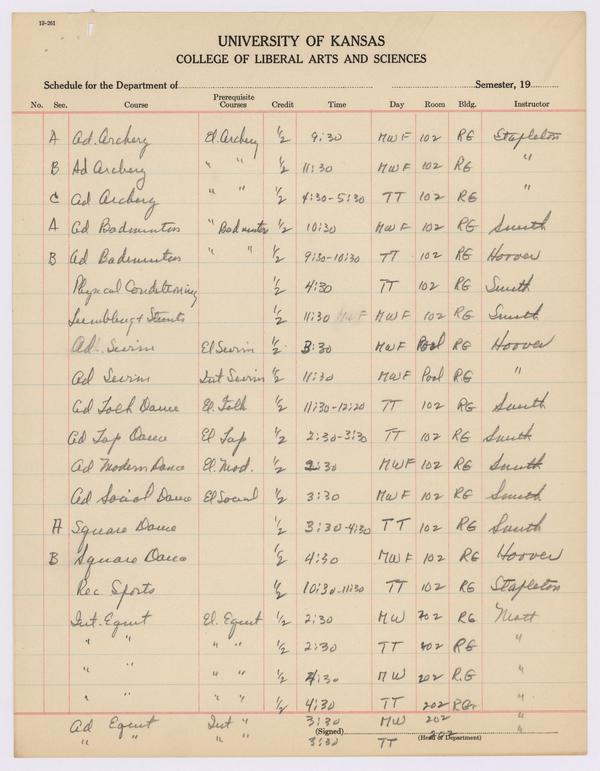 13-261
UNIVERSITY OF KANSAS
COLLEGE OF LIBERAL ARTS AND SCIENCES
Schedule for the Department of Semester, 19
No. Sec. Course Prerequisite Courses Credit Time Day Room Bldg. Instructor
A Ad. Archery El. Archery 1/2 9:30 MWF 102 RG Stapleton
B Ad Archery " " 1/2 11:30 MWF 102 RG "
C Ad Archery " " 1/2 4:30-5:30 TT 102 RG "
A Ad Badminton " Badminton 1/2 10:30 MWF 102 RG Smith
B Ad Badminton " " 1/2 9:30-10:30 TT 102 RG Hoover
Physical Conditioning 1/2 4:30 TT 102 RG Smith
Tumbling & Stunts 1/2 11:30 MWF 102 RG Smith
Ad. Swim El Swim 1/2 3:30 MWF Pool RG Hoover
Ad Swim Int Swim 1/2 11:30 MWF Pool RG "
Ad Folk Dance El. Folk 1/2 11:30-12:20 TT 102 RG Smith
Ad Tap Dance El Tap 1/2 2:30-3:30 TT 102 RG Smith
Ad Modern Dance El. Mod. 1/2 2:30 MWF 102 RG Smith
Ad Social Dance El Social 1/2 3:30 MWF 102 RG Smith
A Square Dance 1/2 3:30-4:30 TT 102 RG Smith
B Square Dance 1/2 4:30 MWF 102 RG Hoover
Rec Sports 1/2 10:30-11:30 TT 102 RG Stapleton
Int. Equit El. Equit 1/2 2:30 MW 202 RG
" " " " 1/2 2:30 TT 202 RG "
" " " " 1/2 4:30 MW 202 R.G "
" " " " 1/2 4:30 TT 202 RG "
Ad Equit Int " 3:30 MW 202 "
(Signed) (Head of Department)
" " " " 3:30 TT 202 "